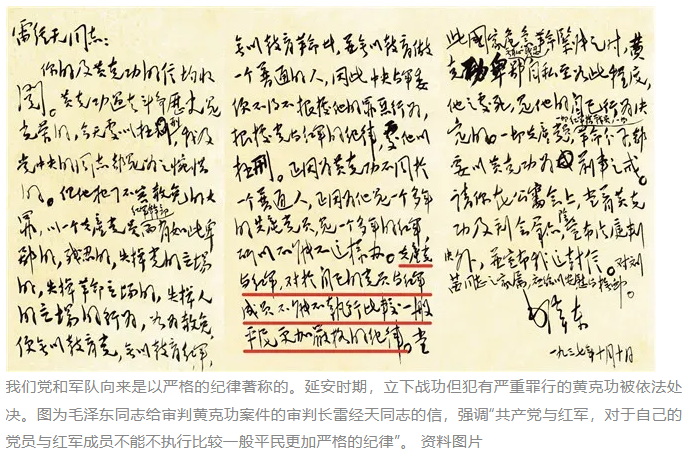 雷经天同志:
你的及黄克功的信均收
阅。黄克功过去斗争历史是
光荣的,今天处以极刑,我及
党中央的同志都是为之惋惜
的。但他犯了不容赦免的大
罪,以一个共产党员红军干部而有如此卑
鄙的,残忍的,失掉党的立场
的,失掉革命立场的,失掉人
的立场的行为,如为赦免,
便无以教育党,无以教育红军,
无以教育革命者,并无以教育做
一个普通的人,因此中央与军委
便不得不根据他的罪恶行为,
根据党与红军的纪律,处他以
极刑。正因为黄克功不同于
一个普通人,正因为他是一个多年
的共产党员,是一个多年的红军,
所以不能不这样办。共产党
与红军,对于自己的党员与红军
成员不能不执行比较一般
平民更加严格的纪律。当
此国家危急革命紧张之时,黄
克功卑鄙无耻残忍自私至如此程度,
他之处死,是他自己行为决
定的。一切共产党员,一切红军指战员,一切革命分子,都
要以黄克功为前车之戒。
请你在公审会上,当着黄克
功及到会群众,除宣布法庭判
决外,并宣布我这封信。对刘
茜同志之家属,应给以安慰与抚恤。
毛泽东
一九三七年十月十日
我们党和军队向来是以严格的纪律著称的。延安时期,立下战功但犯有严重罪行的黄克功被依法处
决。图为毛泽东同志给审判黄克功案件的审判长雷经天同志的信,强调“共产党与红军,对于自己的
党员与红军成员不能不执行比较一般平民更加严格的纪律”。 资料图片